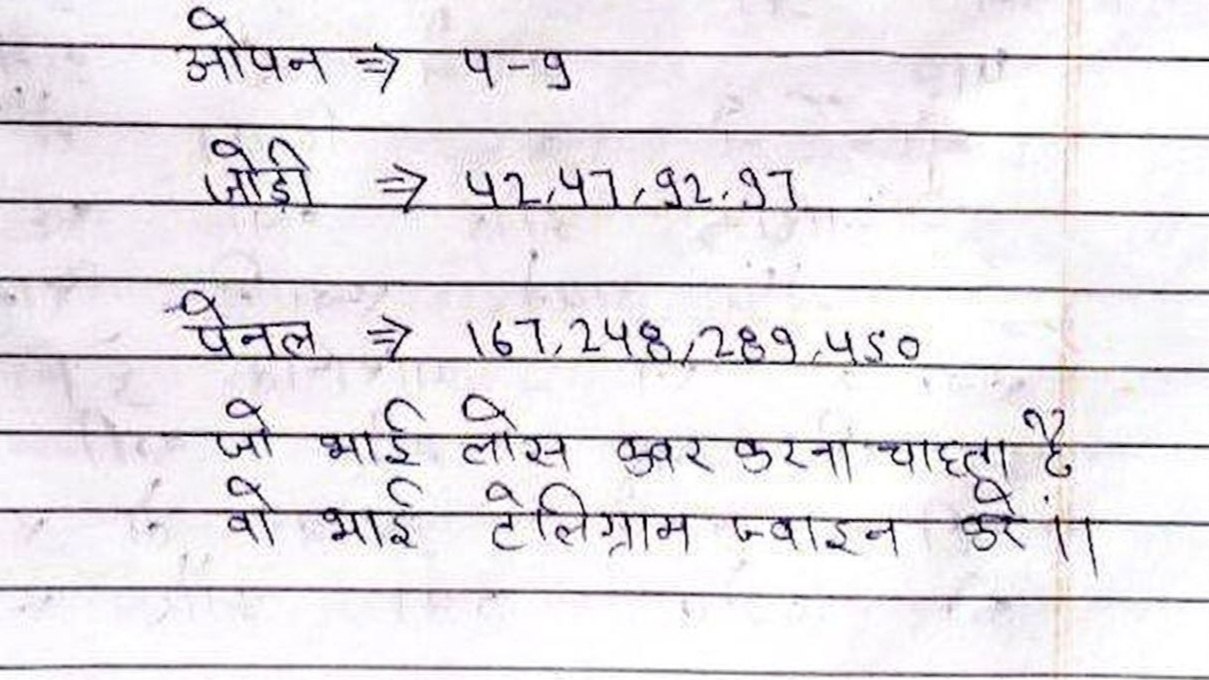 ओपन ⇒ 4-9
जोड़ी ⇒ 42,47,92,97
पेनल ⇒ 167,248,289,450
जो भाई लोस कवर करना चाहता है
वो भाई टेलिग्राम ज्वाइन करें ।।